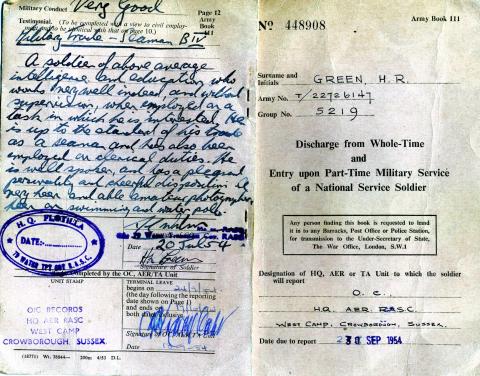 Military Conduct Very Good
Page 12
Testimonial. (To be completed with a view to civil employ-
ment and to be identical with that on page 10.)
Army
Book
111
Military Trade - Seaman BIV
A soldier of above average
intelligence and education, who
works very well indeed, and without
supervision, when employed on a
task in which he is interested. He
is up to the standard of his trade
as a seaman and has also been
employed on clerical duties. He
is well spoken and has a pleasant
personality and cheerful disposition. A
very keen and able amateur photographer,
keen on swimming and water polo.
H.Q. FLOTILLA
DATE:
R.A.S.C.
20 Jul 54
Signature of Soldier
Completed by the OC, AER/TA Unit
UNIT STAMP
O I/C RECORDS
HQ AER RASC
WEST CAMP
CROWBOROUGH, SUSSEX.
TERMINAL LEAVE
begins on
(the day following the reporting
date shown on Page 1)
and ends on
both dates inclusive.
Date
200m 4/53 D.L.
Army Book 111
No 448908
Surname and
Initials GREEN, H.R.
Army No. T/22726147
Group No. 5219
Discharge from Whole-Time
and
Entry upon Part-Time Military Service
of a National Service Soldier
Any person finding this book is requested to hand
it in to any Barracks, Post Office or Police Station,
for transmission to the Under-Secretary of State,
The War Office, London, S.W.1
Designation of HQ, AER or TA Unit to which the soldier
will report
O. C.
H.Q. AER RASC.
WEST CAMP, CROWBOROUGH, SUSSEX.
Date due to report SEP 1954